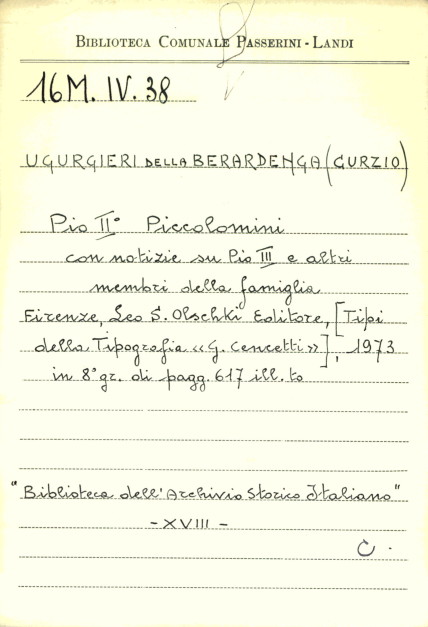 BIBLIOTECA COMUNALE PASSERINI - LANDI
16M. IV. 38
UGURGIERI DELLA BERARDENGA (CURZIO)
Pio II° Piccolomini
con notizie su Pio III e altri
membri della famiglia
Firenze, Leo S. Olschki Editore, [Tipi
della Tipografia «G. Cencetti»], 1973
in 8° gr. di pagg. 617 ill. to
"Biblioteca dell'Archivio Storico Italiano"
- XVIII -
C.